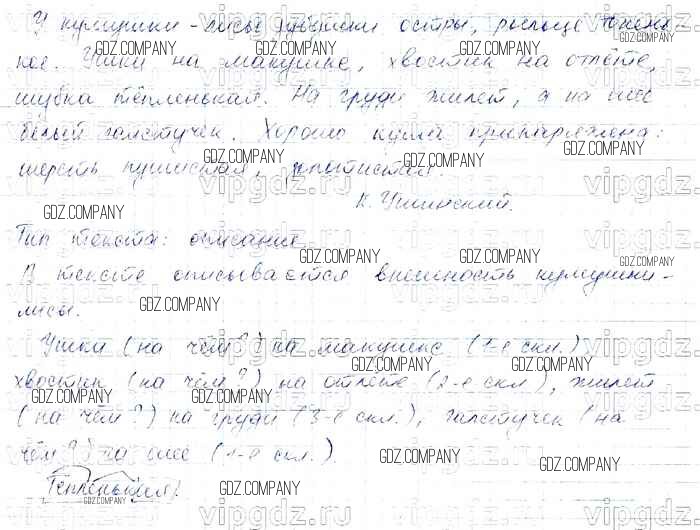 У кумушки-лисы зубушки остры, рыльце тонень-
кое. Ушки на макушке, хвостик на отлёте,
шубка тёпленькая. На груди жилет, а на шее
белый галстучек. Хорошо кума принаряжена:
шерсть пушистая, золотистая.
К. Ушинский.
Тип текста: описание.
В тексте описывается внешность кумушки-
лисы.
Ушки (на чём?) на макушке (1-е скл.),
хвостик (на чём?) на отлёте (2-е скл.), жилет
(на чём?) на груди (3-е скл.), галстучек (на
чём?) на шее (1-е скл.).
Тёпленькая
GDZ.COMPANY
vipgdz.ru